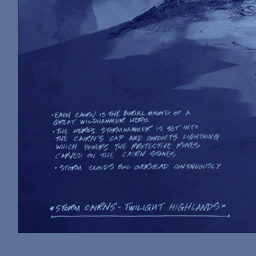 •EACH CAIRN IS THE BURIAL MOUND OF A
GREAT WILDHAMMER HERO.
•THE HERO'S STORMHAMMER IS SET INTO
THE CAIRN'S CAP AND CONDUCTS LIGHTNING
WHICH POWERS THE PROTECTIVE RUNES
CARVED ON THE CAIRN STONES.
• STORM CLOUDS BOIL OVERHEAD CONTINUOUSLY.
*STORM CAIRNS - TWILIGHT HIGHLANDS*